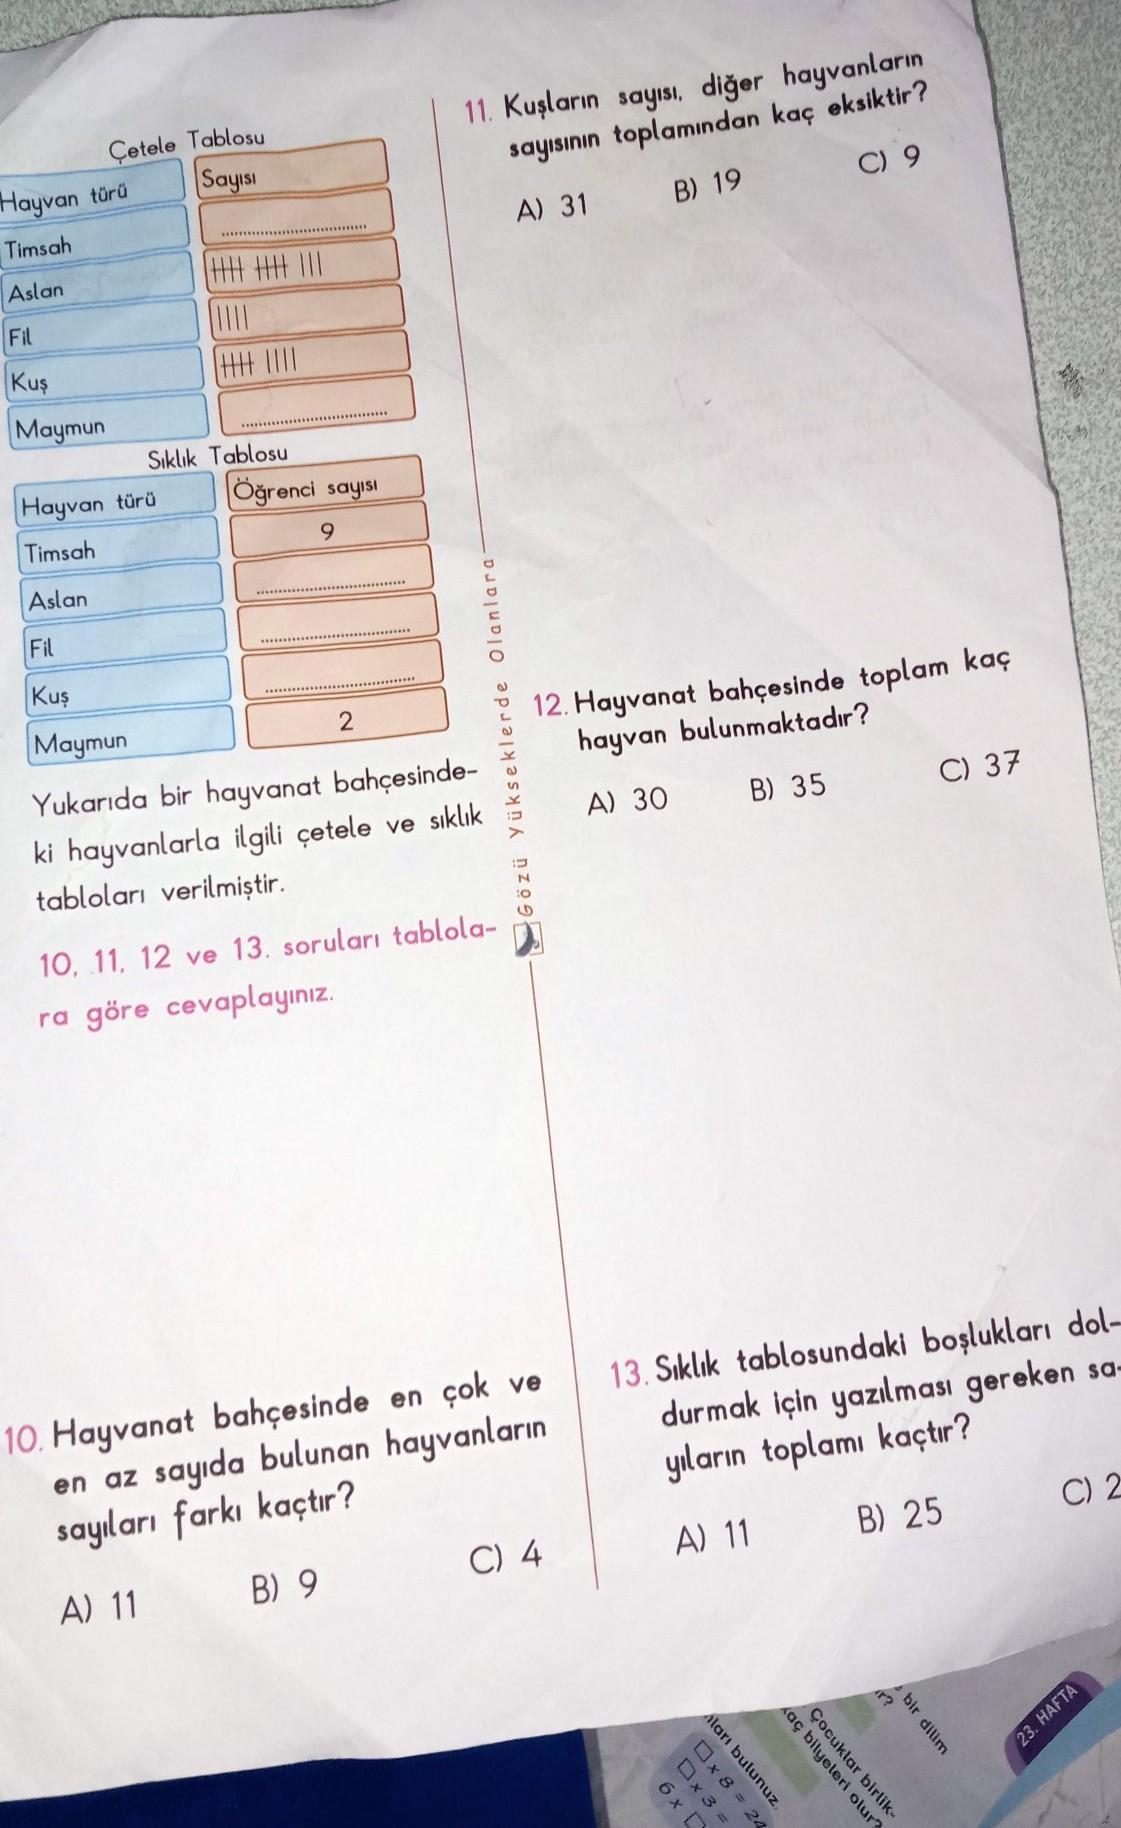 Çetele Tablosu
Hayvan türü Sayısı
Timsah ..............................
Aslan 𝍸 𝍸 |||
Fil ||||
Kuş 𝍸 ||||
Maymun ..............................
Sıklık Tablosu
Hayvan türü Öğrenci sayısı
Timsah 9
Aslan ..............................
Fil ..............................
Kuş ..............................
Maymun 2
Yukarıda bir hayvanat bahçesinde-
ki hayvanlarla ilgili çetele ve sıklık
tabloları verilmiştir.
10, 11, 12 ve 13. soruları tablola-
ra göre cevaplayınız.
10. Hayvanat bahçesinde en çok ve
en az sayıda bulunan hayvanların
sayıları farkı kaçtır?
A) 11 B) 9 C) 4
Gözü Yükseklerde Olanlara
11. Kuşların sayısı, diğer hayvanların
sayısının toplamından kaç eksiktir?
A) 31 B) 19 C) 9
12. Hayvanat bahçesinde toplam kaç
hayvan bulunmaktadır?
A) 30 B) 35 C) 37
13. Sıklık tablosundaki boşlukları dol-
durmak için yazılması gereken sa-
yıların toplamı kaçtır?
A) 11 B) 25 C) 2
23. HAFTA
bir dilim
Çocuklar birlik-
kaç bilyeleri olur?
bulunuz.
□ x 8 = 24
□ x 3 =
6 x □